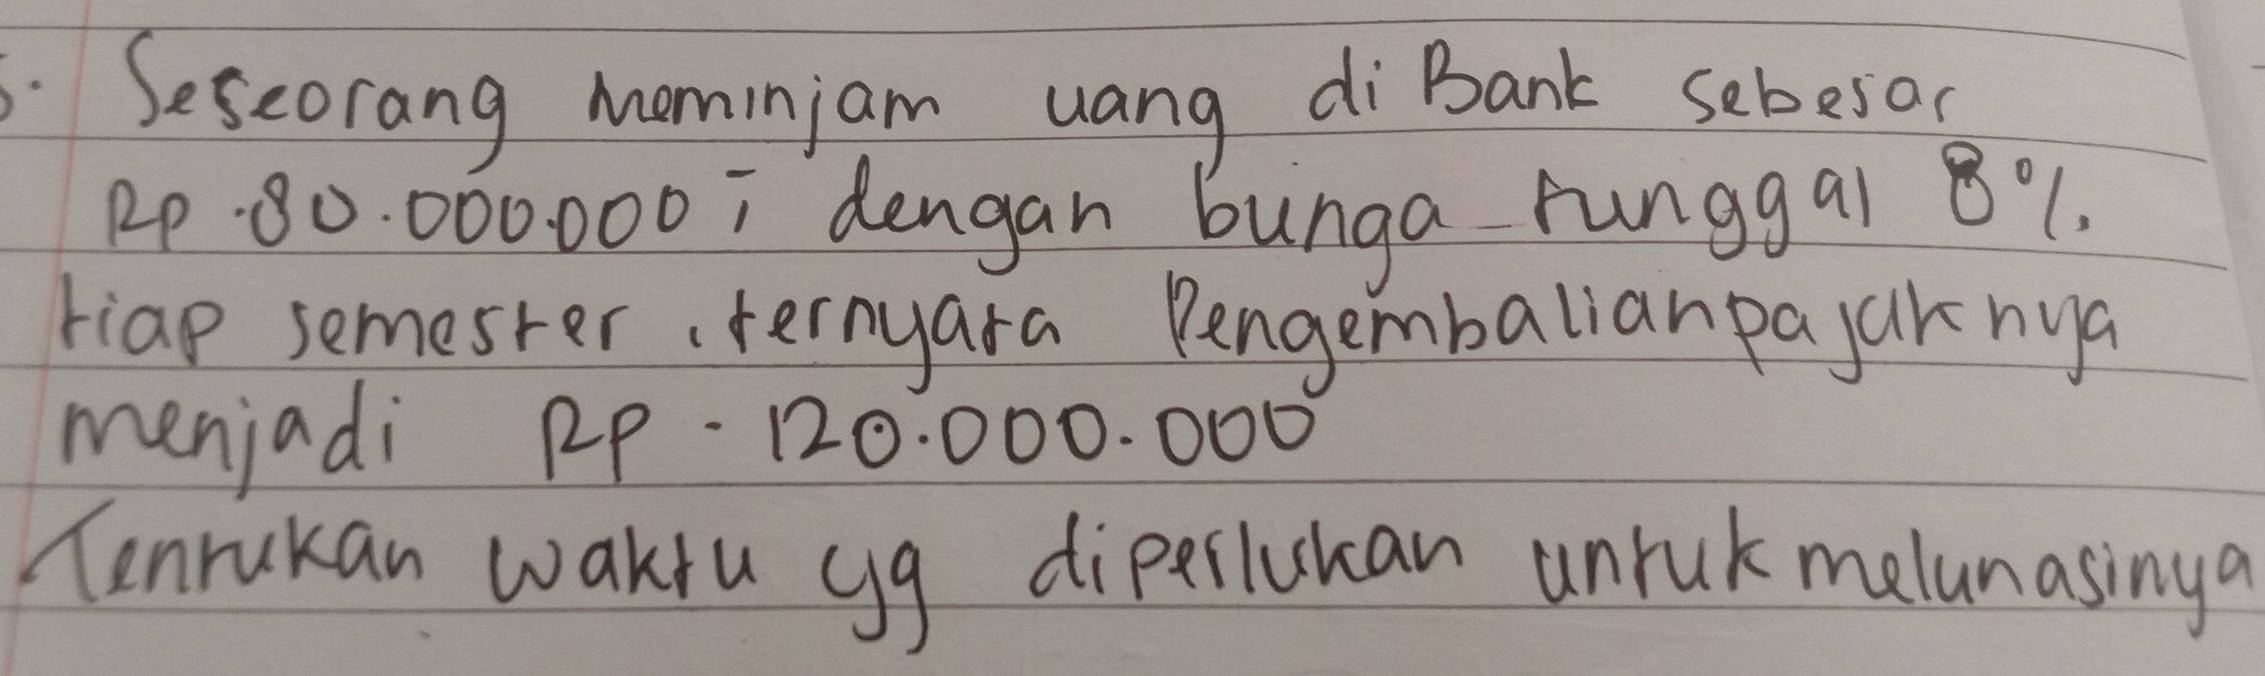 5. Seseorang meminjam uang di Bank sebesar
Rp.80.000.000,- dengan bunga tunggal 8%
tiap semester, ternyata Pengembalianpajaknya
menjadi Rp. 120.000.000
Tentukan waktu yg diperlukan untuk melunasinya